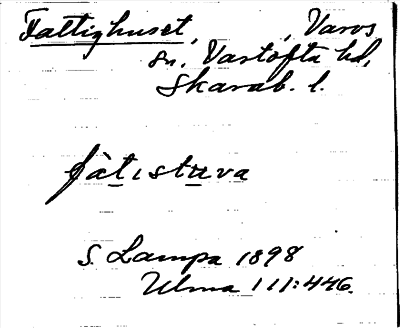 Fattighuset, , Varvs
sn. Vartofta hd,
Skarab. l.
fàtıstu̲va
S. Lampa 1898
Ulma 111:446.